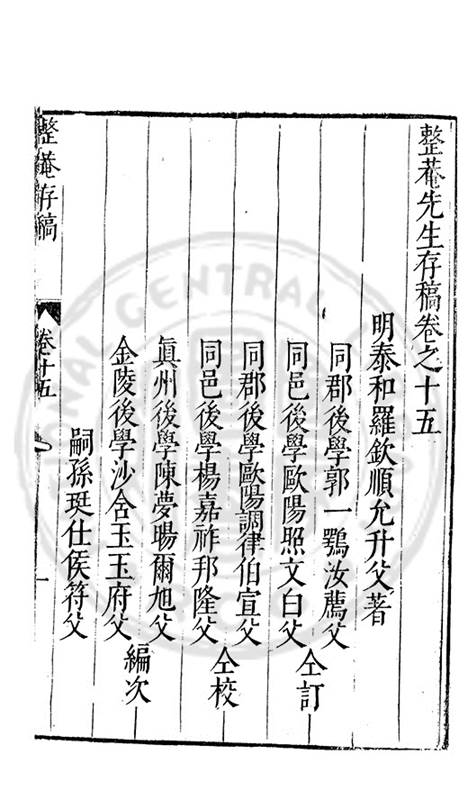 整菴先生存稿卷之十五
明泰和羅欽順允升父著
同郡後學郭一鶚汝薦父
同邑後學歐陽照文白父
仝訂
同郡後學歐陽調律伯宣父
同邑後學楊嘉祚邦隆父
仝校
眞州後學陳夢暘爾旭父
金陵後學沙舍玉玉府父
編次
嗣孫珽仕侯符父
整菴存稿
卷十五
一
NATIONAL CENTRAL